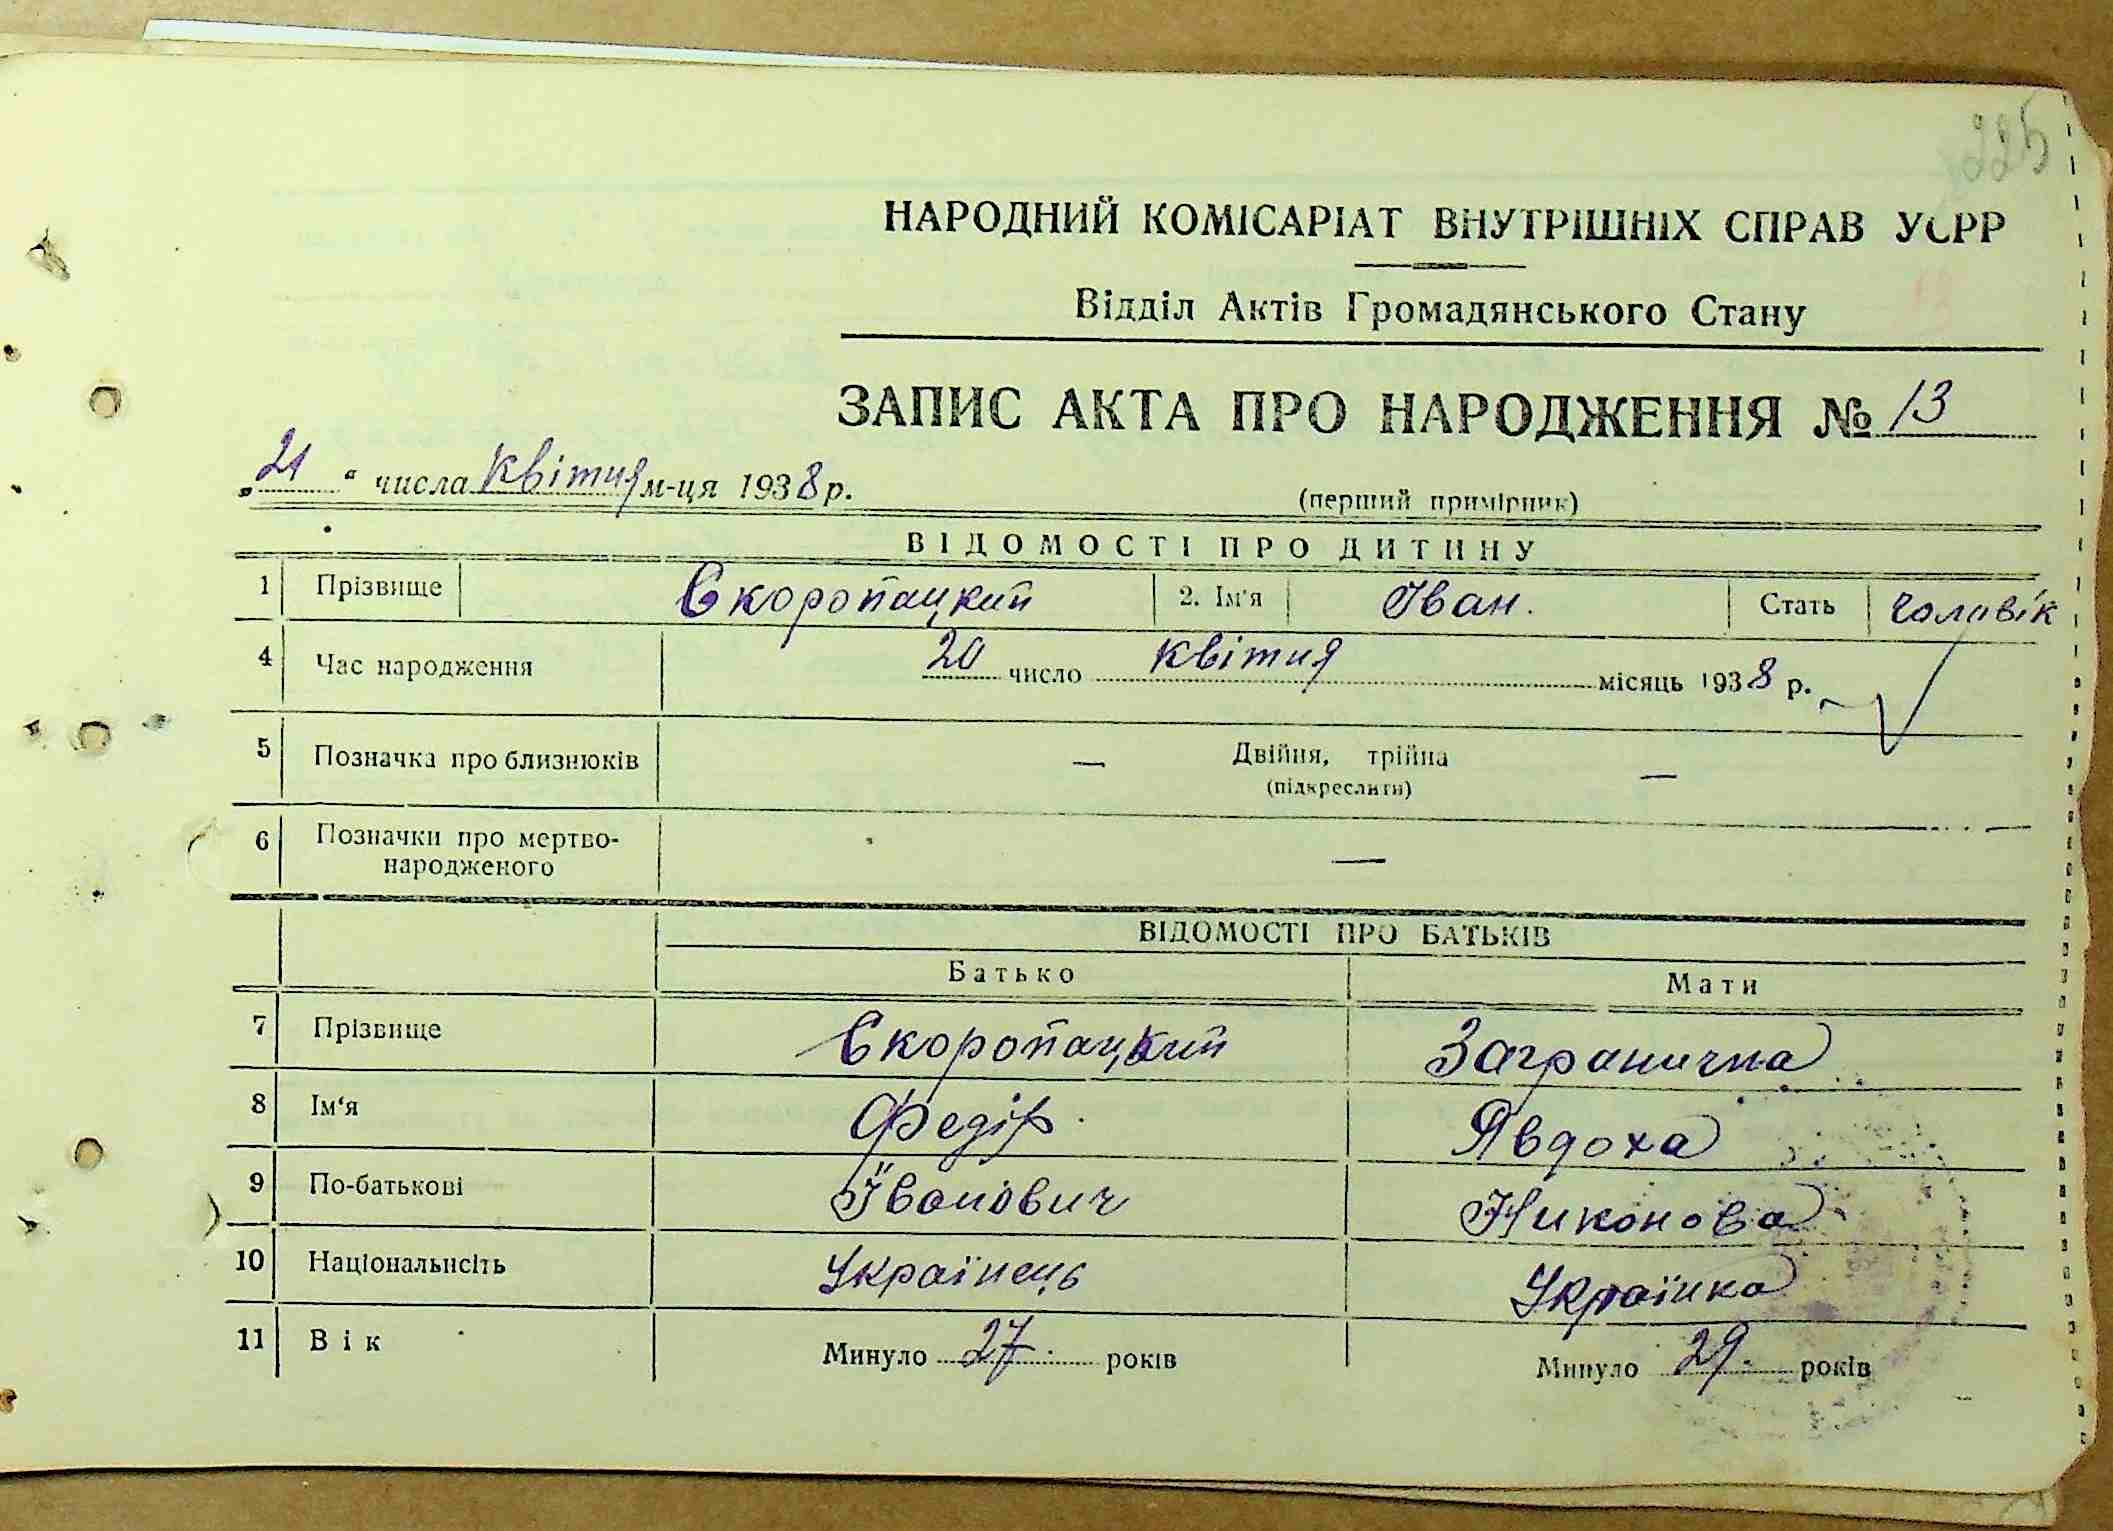 225
НАРОДНИЙ КОМІСАРІАТ ВНУТРІШНІХ СПРАВ УСРР
Відділ Актів Громадянського Стану
ЗАПИС АКТА ПРО НАРОДЖЕННЯ № 13
„21“ числа квітня м-ця 1938 р.
(перший примірник)
ВІДОМОСТІ ПРО ДИТИНУ
1 Прізвище Скоропацкий 2. Ім'я Іван. Стать чоловік
4 Час народження 20 число квітня місяць 1938 р.
5 Позначка про близнюків — Двійня, трійна —
(підкреслити)
6 Позначки про мертво-
народженого —
ВІДОМОСТІ ПРО БАТЬКІВ
Батько Мати
7 Прізвище Скоропацкий Загранична
8 Ім‘я Федір Явдоха
9 По-батькові Іванович Никонова
10 Національнсіть Українець Українка
11 Вік Минуло 27 років Минуло 29 років